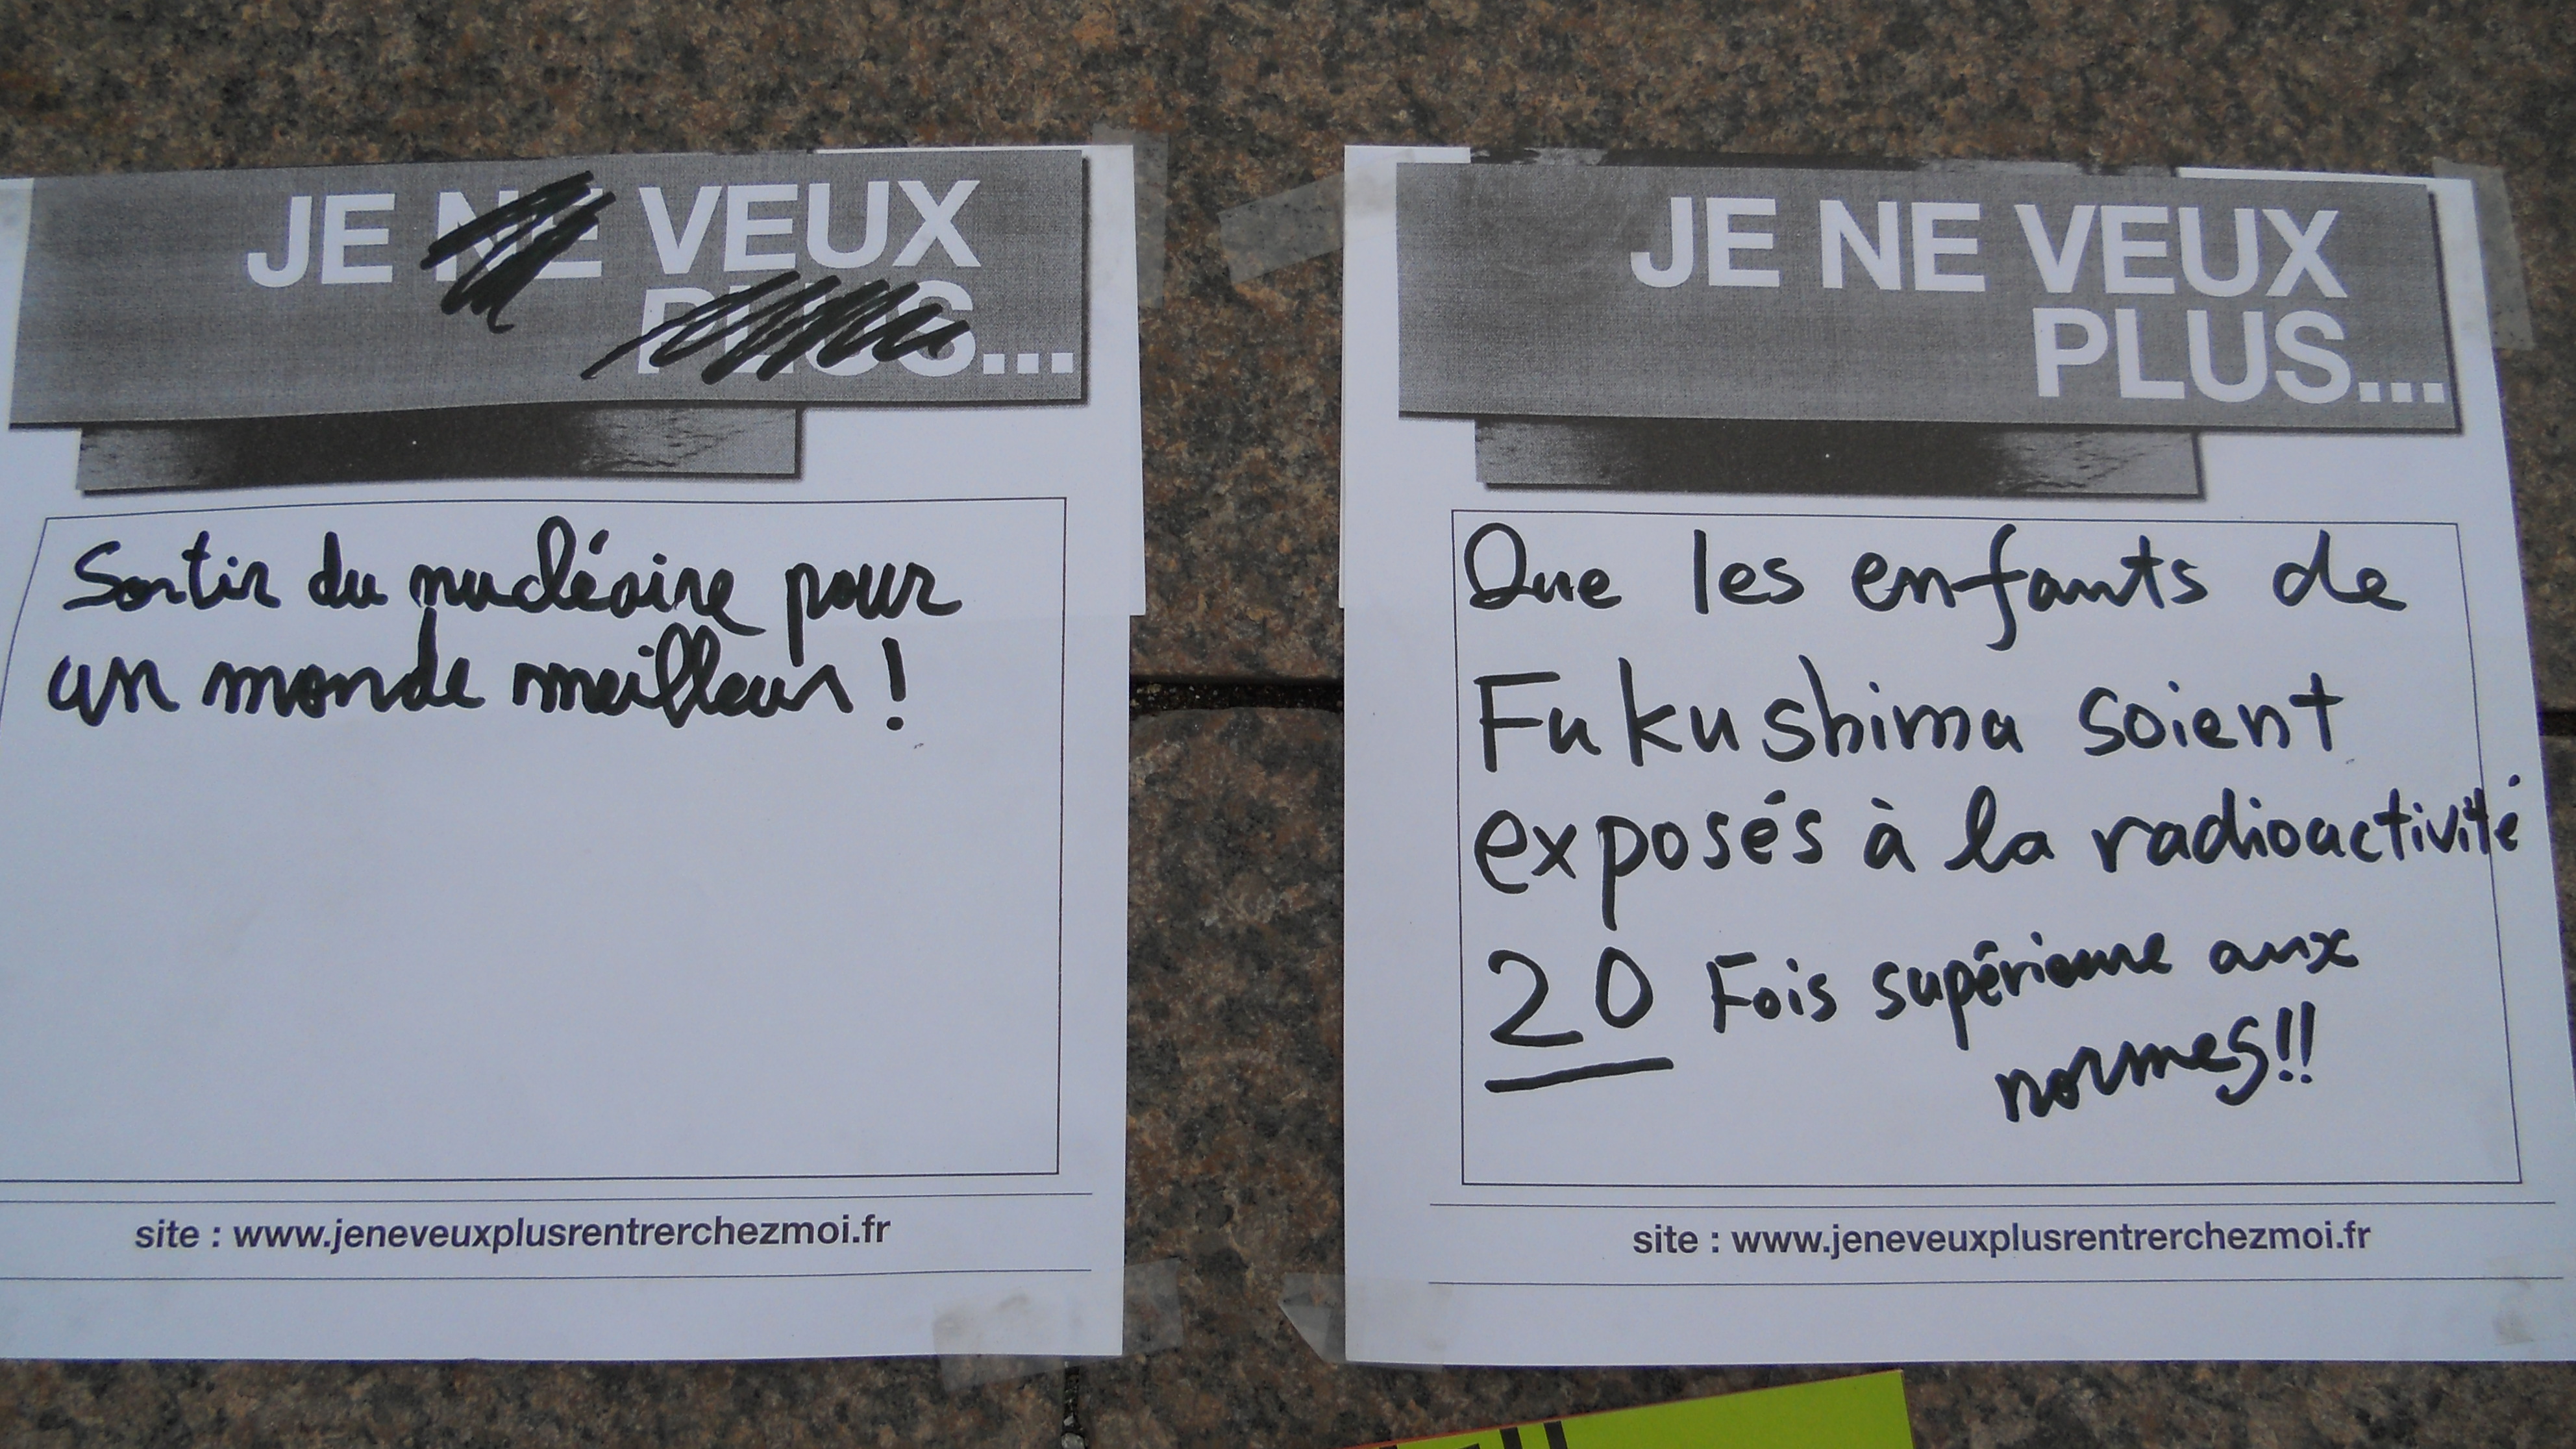 JE NE VEUX
PLUS...
Sortir du nucléaire pour
un monde meilleur !
site : www.jeneveuxplusrentrerchezmoi.fr
JE NE VEUX
PLUS...
Que les enfants de
Fukushima soient
exposés à la radioactivité
20 Fois supérieure aux
normes!!
site : www.jeneveuxplusrentrerchezmoi.fr